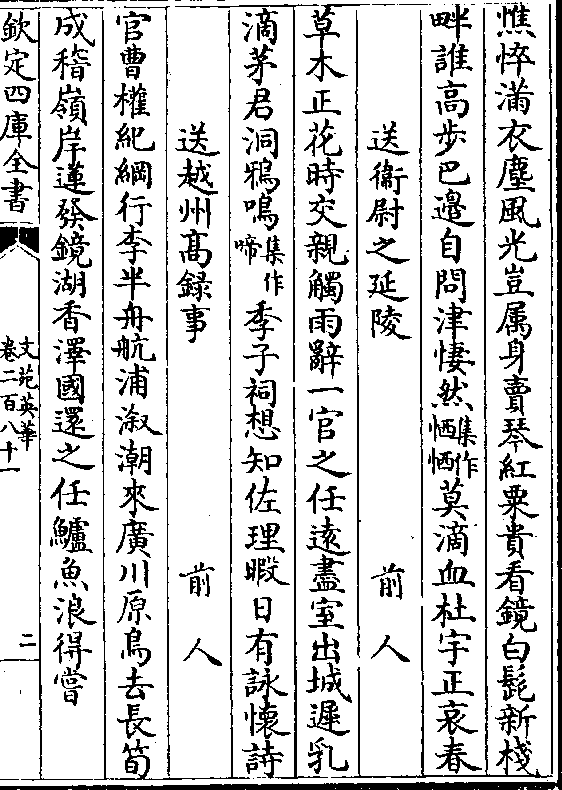 憔悴滿衣塵風光豈属身賣琴紅粟貴看鏡白髭新棧
畔誰高步巴邉自問津悽然集作恓恓莫滴血杜宇正哀春
送衞尉之延陵 前人
草木正花時交親觸雨辭一官之任逺盡室出城遲乳
滴茅君洞鴉鳴集作啼季子祠想知佐理暇日有詠懷詩
送越州髙録事 前人
官曹權紀綱行李半舟航浦溆潮來廣川原鳥去長筍
成稽嶺岸蓮發鏡湖香澤國還之任鱸魚浪得嘗
欽定四庫全書
文苑英華
卷二百八十一
二